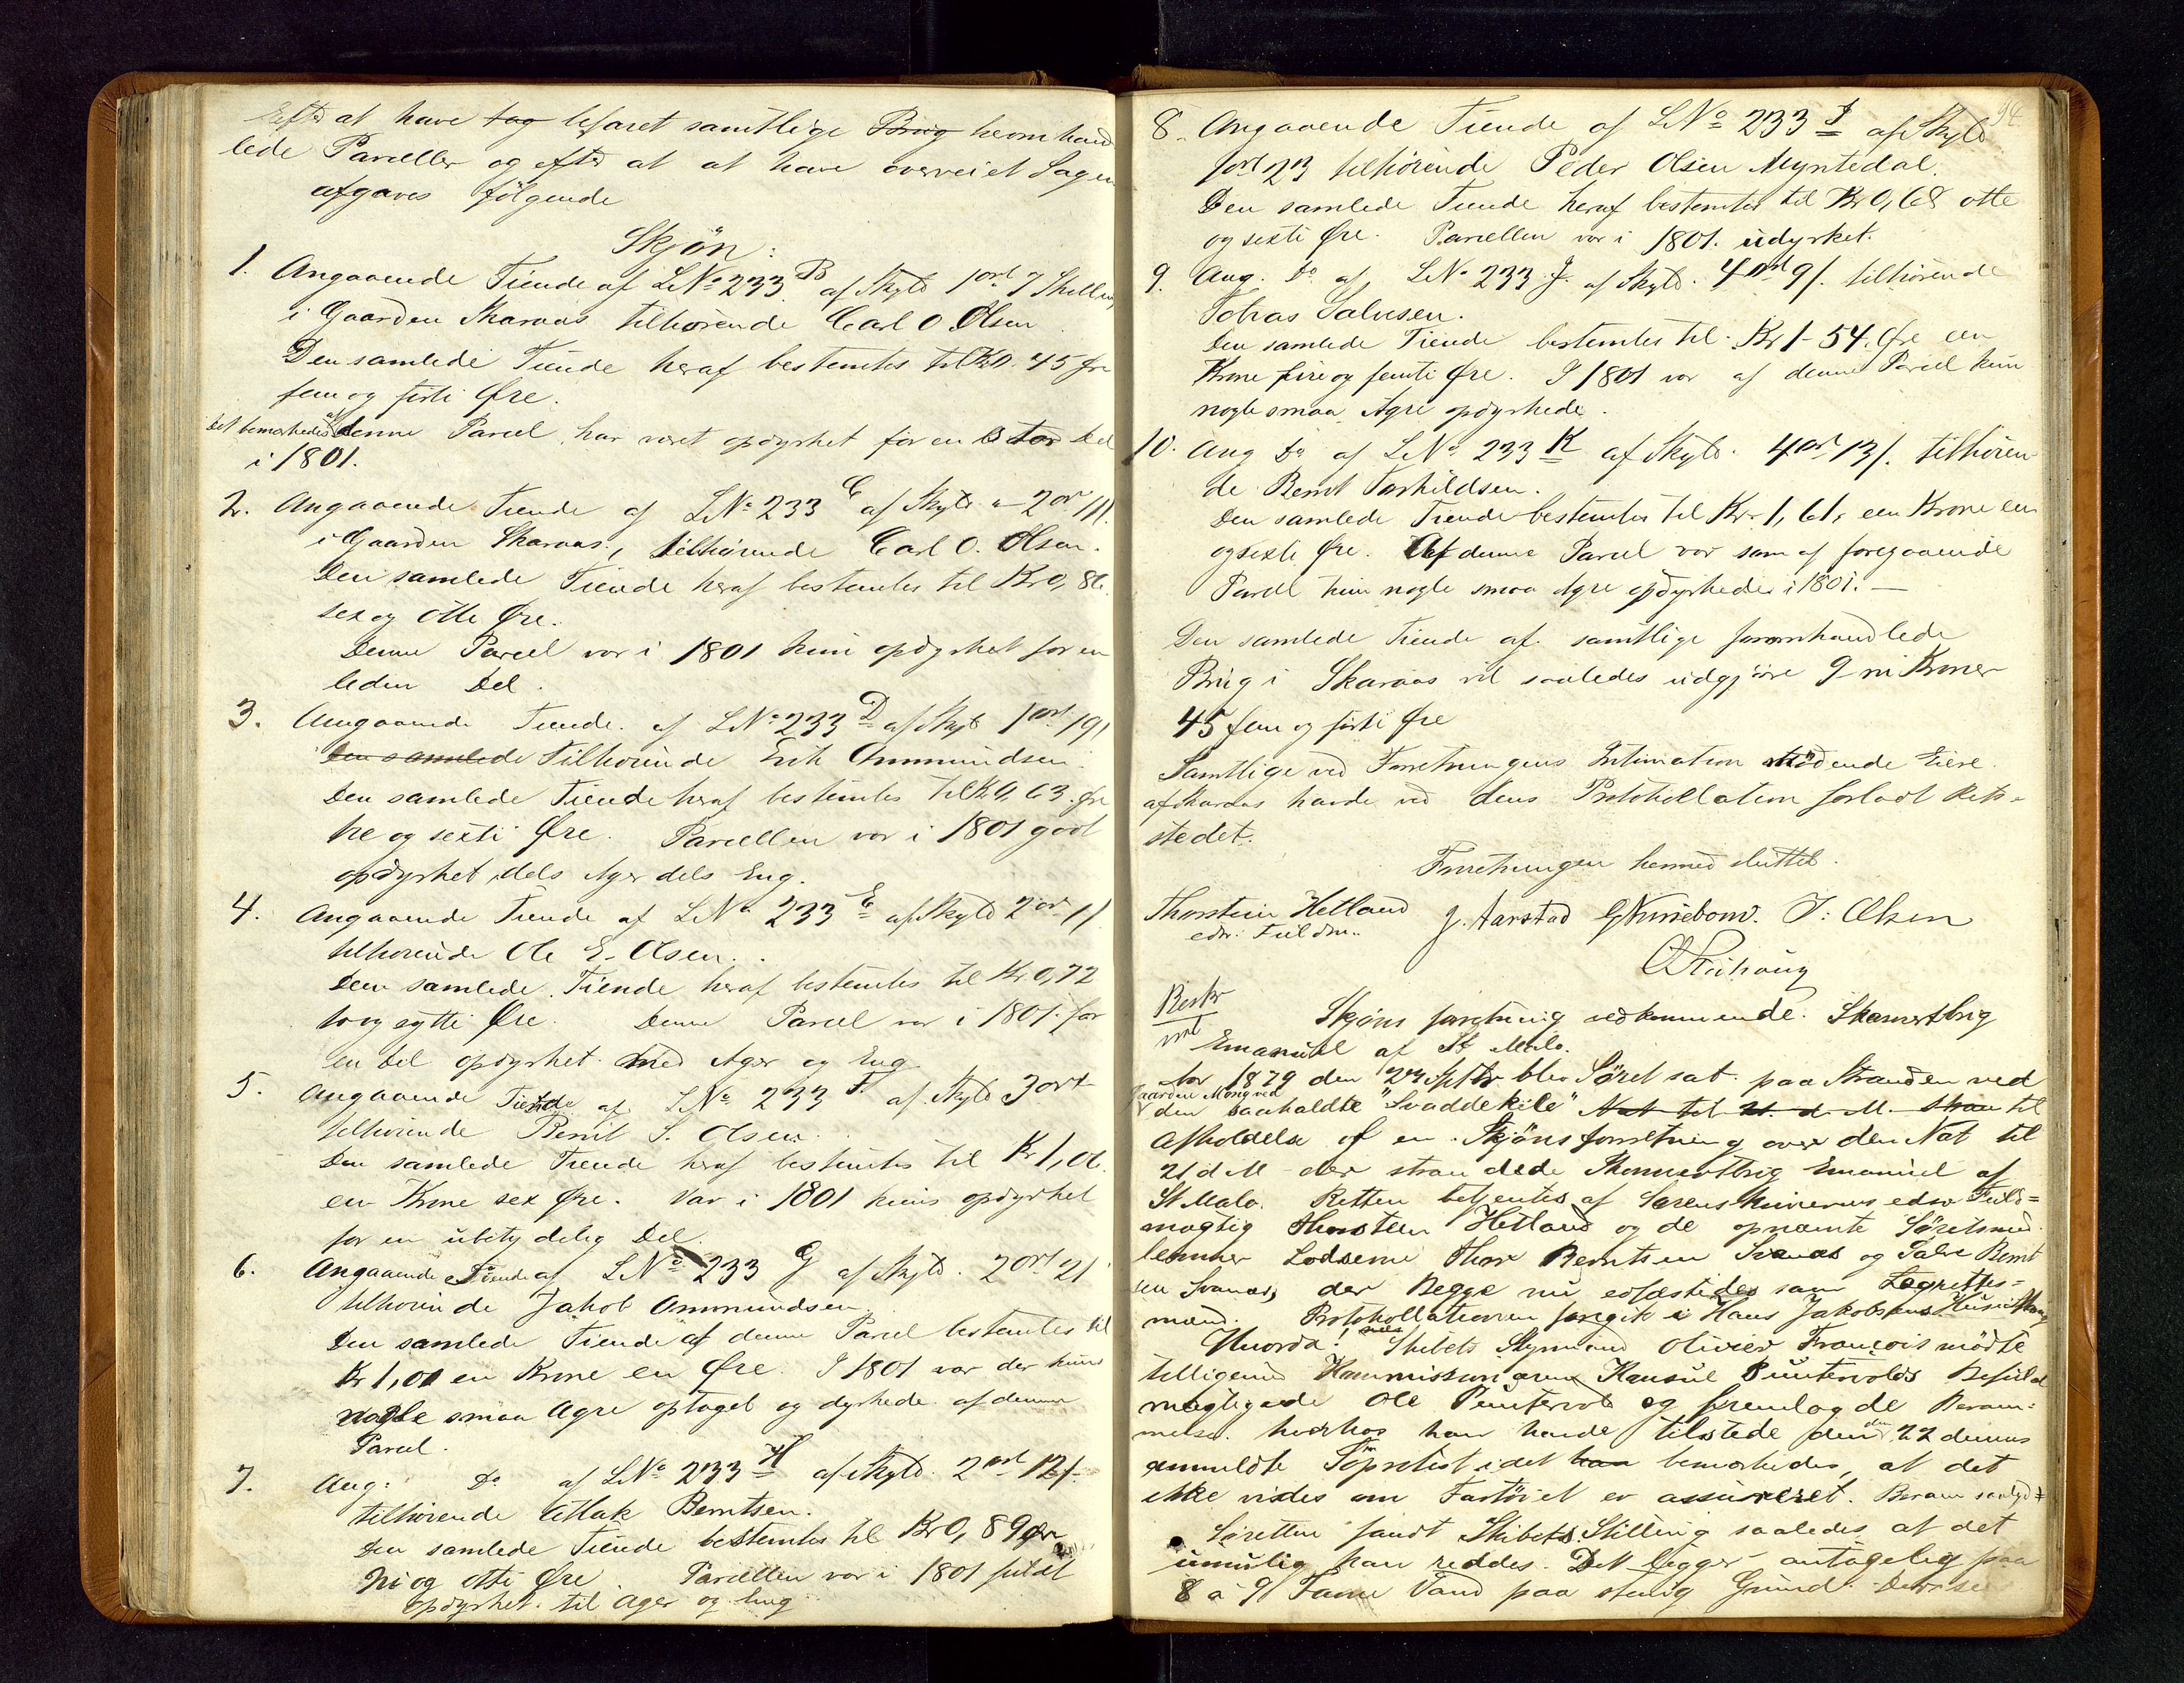 Efter at have ~~tag~~ befaret samtlige ~~Brug~~ heromhand
lede Parceller og efter at at have overveiet Sagen
afgaves følgende
Skjøn:
1. Angaaende Tiende af LNo 233 B af Skyld 1 ort 7 Skilling
i Gaarden Skaraas tilhørende Carl O Olsen.
Den samlede Tiende heraf bestemtes til Kr 0. 45 Øre
fem og førti Øre.
Det bemærkedes at denne Parcel har været opdyrket for en stor Del
i 1801.
2. Angaaende Tiende af LNo 233 C af Skyld - 2 ort 11/.
i Gaarden Skaraas, tilhørende Carl O. Olsen.
Den samlede Tiende heraf bestemtes til Kr 0, 86.
sex og otte Øre.
Denne Parcel var i 1801 kun opdyrket for en
liden Del.
3. Angaaende Tiende af LNo 233 D af Skyld 1 ort 19/
~~Den samlede~~ tilhørende Erik Ommundsen.
Den samlede Tiende heraf bestemtes til Kr 0, 63 Øre
tre og sexti Øre. Parcellen var i 1801 godt
opdyrket, dels Ager dels Eng.
4. Angaaende Tiende af LNo 233 E af Skyld 2 ort 1/
tilhørende Ole E. Olsen.
Den samlede Tiende heraf bestemtes til Kr 0,72
to og sytti Øre. Denne Parcel var i 1801 for
en Del opdyrket med Ager og Eng
5. Angaaende Tiende af LNo 233 F. af Skyld 3 ort
tilhørende Bernt S. Olsen.
Den samlede Tiende heraf bestemtes til Kr 1,06.
en Krone sex Øre. Var i 1801 kuns opdyrket
for en ubetydelig Del.
6. Angaaende Tiende af LNo 233 G af Skyld. 2 ort 21
tilhørende Jakob Ommundsen
Den samlede Tiende af denne Parcel bestemtes til
Kr 1,01 en Krone en Øre. I 1801 var der kuns
nogle smaa Agre optaget og dyrkede af denne
Parcel.
7. Ang: Do af LNo 233 H af Skyld. 2 ort 12/.
tilhørende Atlak Berntsen.
Den samlede Tiende bestemtes til Kr 0, 89 Øre
ni og otti Øre. Parcellen var i 1801 fuldt
opdyrket til Ager og Eng
94
8. Angaaende Tiende af LNo 233 I af Skyld
1 ort 23 tilhørende Peder Olsen Myntedal.
Den samlede Tiende heraf bestemtes til Kr 0,68 otte
og sexti Øre. Parcellen var i 1801. udyrket.
9. Ang. Do af LNo 233 J. af Skyld. 4 ort 9/. tilhørende
Tobias Salvesen.
Den samlede Tiende bestemtes til Kr 1-54. Øre en
Krone fire og femti Øre. I 1801 var af denne Parcel kun
nogle smaa Agre opdyrkede.
10. Ang Do af LNo 233 K af Skyld. 4 ort 13/. tilhøren
de Bernt Torkildsen.
Den samlede Tiende bestemtes til Kr. 1,61, een Krone en
og sexti Øre. Af denne Parcel var som af foregaaende
Parcel kun nogle smaa Agre opdyrkede i 1801. —
Den samlede Tiende af samtlige foromhandlede
Brug i Skaraas vil saaledes udgjøre 9 ni Kroner
45 fem og førti Øre
Samtlige ved Forretningens Intimation mødende Eiere
af Skaraas havde ved dens Protokollation forladt Rets-
stedet.
Forretningen hermed sluttet.
Thorstein Hetland J. Aarstad J: Olsen
edsv: Fuldm..
Skjøns forretning vedkommende. Skonnertbrig
Emanuel af St Malo.
Aar 1879 den 24 Septbr blev Söret sat paa Stranden ved
Gaarden Mong ved
den saakaldte "Svaddekile" ~~Nat til 21. d. M. stran~~ til
Afholdelse af en Skjönsforretning over den Nat til
21 d M der strandede Skonnertbrig Emanuel af
St Malo. Retten betjentes af Sorenskriverens edsv Fuld=
mægtig Thorstein Hetland og de opnævnte Söretsmed
lemmer Lodserne Thore Berntsen Svanes og Salve Bernt
sen Svanes, der Begge nu edfæstedes som Lagrettes=
mænd. Protokollationen foregik i Hans Jakobsens Huus i Mong
Hvorda! Skibets Styrmand Olivier François mödte
telligemed Kommissionæren Konsul Puntervolds Befuld
mægtigede Ole Puntervold og fremlagde Beram=
melse. hvorhos han havde tilstede den 22 dennes
anmeldte Söprotest idet ~~han~~ bemærkedes, at det
ikke vides om Fartöiet er assureret. Beram saalyd ≠
Söretten fandt Skibets Stilling saaledes at det
umulig kan reddes. Det ligger antagelig paa
8 a 9 Favne Vand paa stenig Grund.